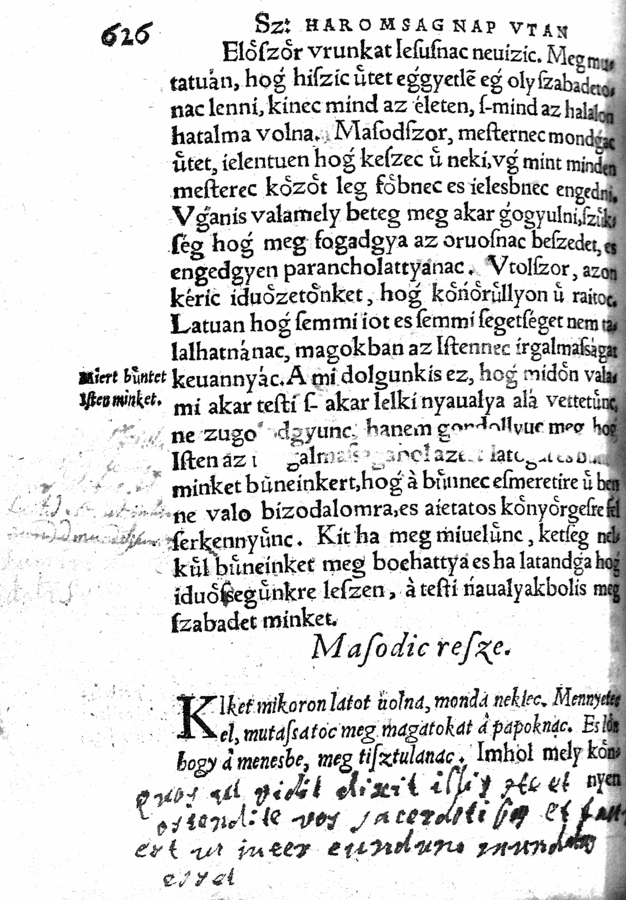 626
Sz: HAROMSAG NAP VTAN
Elo̊ſzo̊r vrunkat Ieſuſnac neuizic. Meg mu-
tatuàn, hoǵ hiſzic ůtet eǵgyetlē eǵ oly ſzabadeto-
nac lenni, kinec mind az életen, ſ-mind az halalon
hatalma volna. Maſodſzor, meſternec mondǵac
ůtet, ielentuen hoǵ keſzec ů neki, vǵ mint minden
meſterec ko̊zo̊t leg fo̊bnec es ieleſbnec engedni.
Vǵanis valamely beteg meg akar ǵogyulni, ſzůk-
ſég hoǵ meg fogadgya az oruoſnac beſzedet, es
engedgyen parancholattyánac. Vtolſzor, azon
kéric iduo̊zeto̊nket, hoǵ ko̊ńo̊růllyon ů raitoc.
Latuan hoǵ ſemmi iot es ſemmi ſegetſéget nem ta-
lalhatnánac, magokban az Iſtennec irgalmaſságat
Miert bůntet
Iſten minket.
keuannyác. A mi dolgunkis ez, hoǵ mido̊n vala-
mi akar teſti ſ- akar lelki nyaualya alá vettetůnc,
ne zugo dgyunc, hanem gondollyuc meg hoǵ
Iſten az
minket bůneinkert, hoǵ à bůnnec eſmeretire ů ben
ne valo bizodalomra, es aietatos ko̊nyo̊rgeſre fel
ſerkennyůnc. Kit ha meg miuelůnc, ketſeg nel-
kůl bůneinket meg bochattya es ha latandǵa hoǵ
iduo̊ſſegůnkre leſzen, à teſti ńaualyakbolis meg
ſzabadet minket.
Maſodic reſze.
KIket mikoron latot uolna, monda nekiec. Mennyetec
el, mutaſsatoc meg magatokat à papoknac. Es lo̊n
hogy à menesbe, meg tiſztulanac. Imhol mely ko̊n-
nyen
quos ut vidit dixit illis ite et
ostendite vos sacerdotibus et
est ut inter eundum mundati